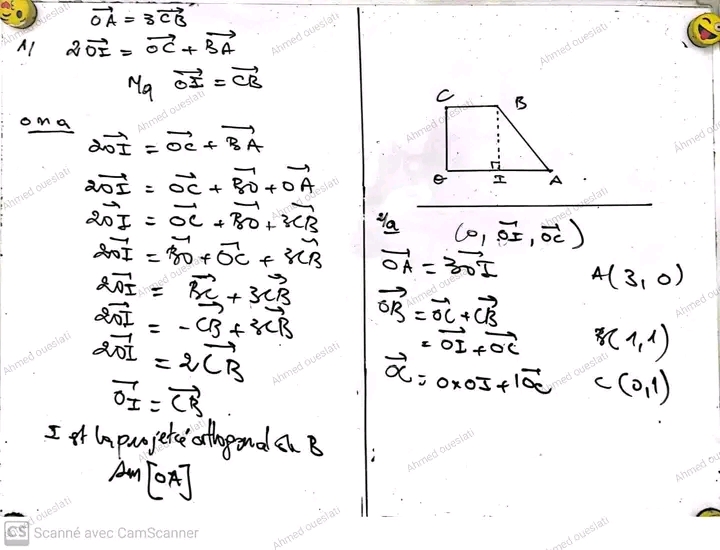 OA = 3CB
1/ 2OI = OC + BA
Mq OI = CB
on a
2OI = OC + BA
2OI = OC + BO + OA
2OI = OC + BO + 3CB
2OI = BO + OC + 3CB
2OI = BC + 3CB
2OI = -CB + 3CB
2OI = 2CB
OI = CB
I est la projeté orthogonal de B
sur [OA]
C B
O I A
2/a (O, OI, OC)
OA = 3OI A(3, 0)
OB = OC + CB
= OI + OC B(1, 1)
OC = 0×OI + 1OC C(0,1)
Ahmed oueslati
CS Scanné avec CamScanner